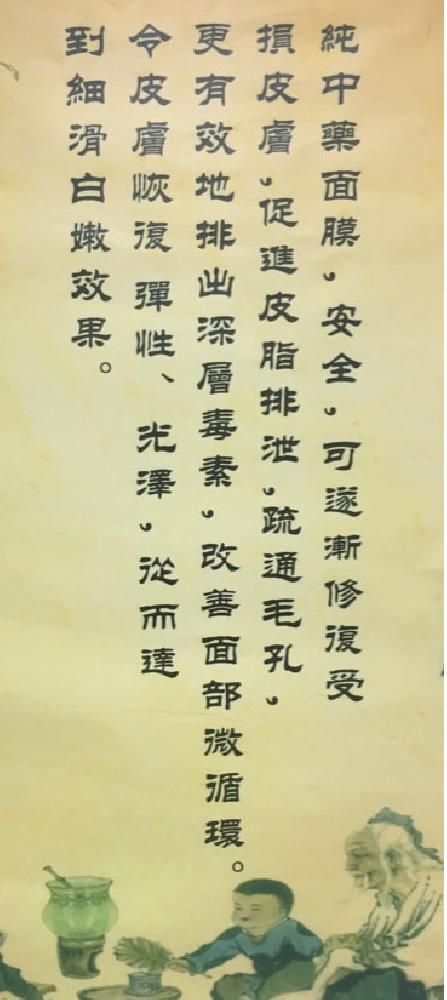 純中藥面膜，安全，可遂漸修復受
損皮膚，促進皮脂排泄，疏通毛孔，
更有效地排出深層毒素，改善面部微循環。
令皮膚恢復彈性、光澤，從而達
到細滑白嫩效果。